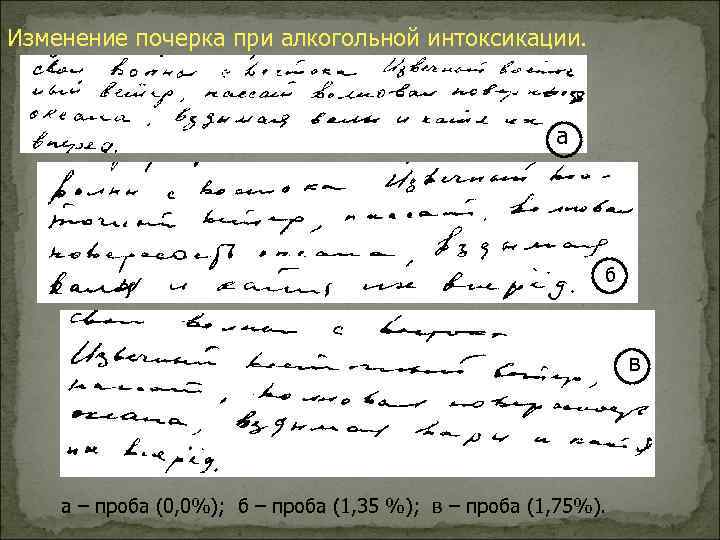 Изменение почерка при алкогольной интоксикации.
свои волны с востока Извечный восточ
ный ветер, пассат волновал поверхность
океана, вздымая валы и катя их
вперед.
а
волны с востока Извечный вос-
точный ветер, пассат, волновал
поверхность океана, вздымая
валы и катя их вперёд.
б
свои волны с востока
Извечный восточный ветер,
пассат, волновал поверхность
океана, вздымая и катя
их вперёд.
в
а – проба (0,0%); б – проба (1,35 %); в – проба (1,75%).